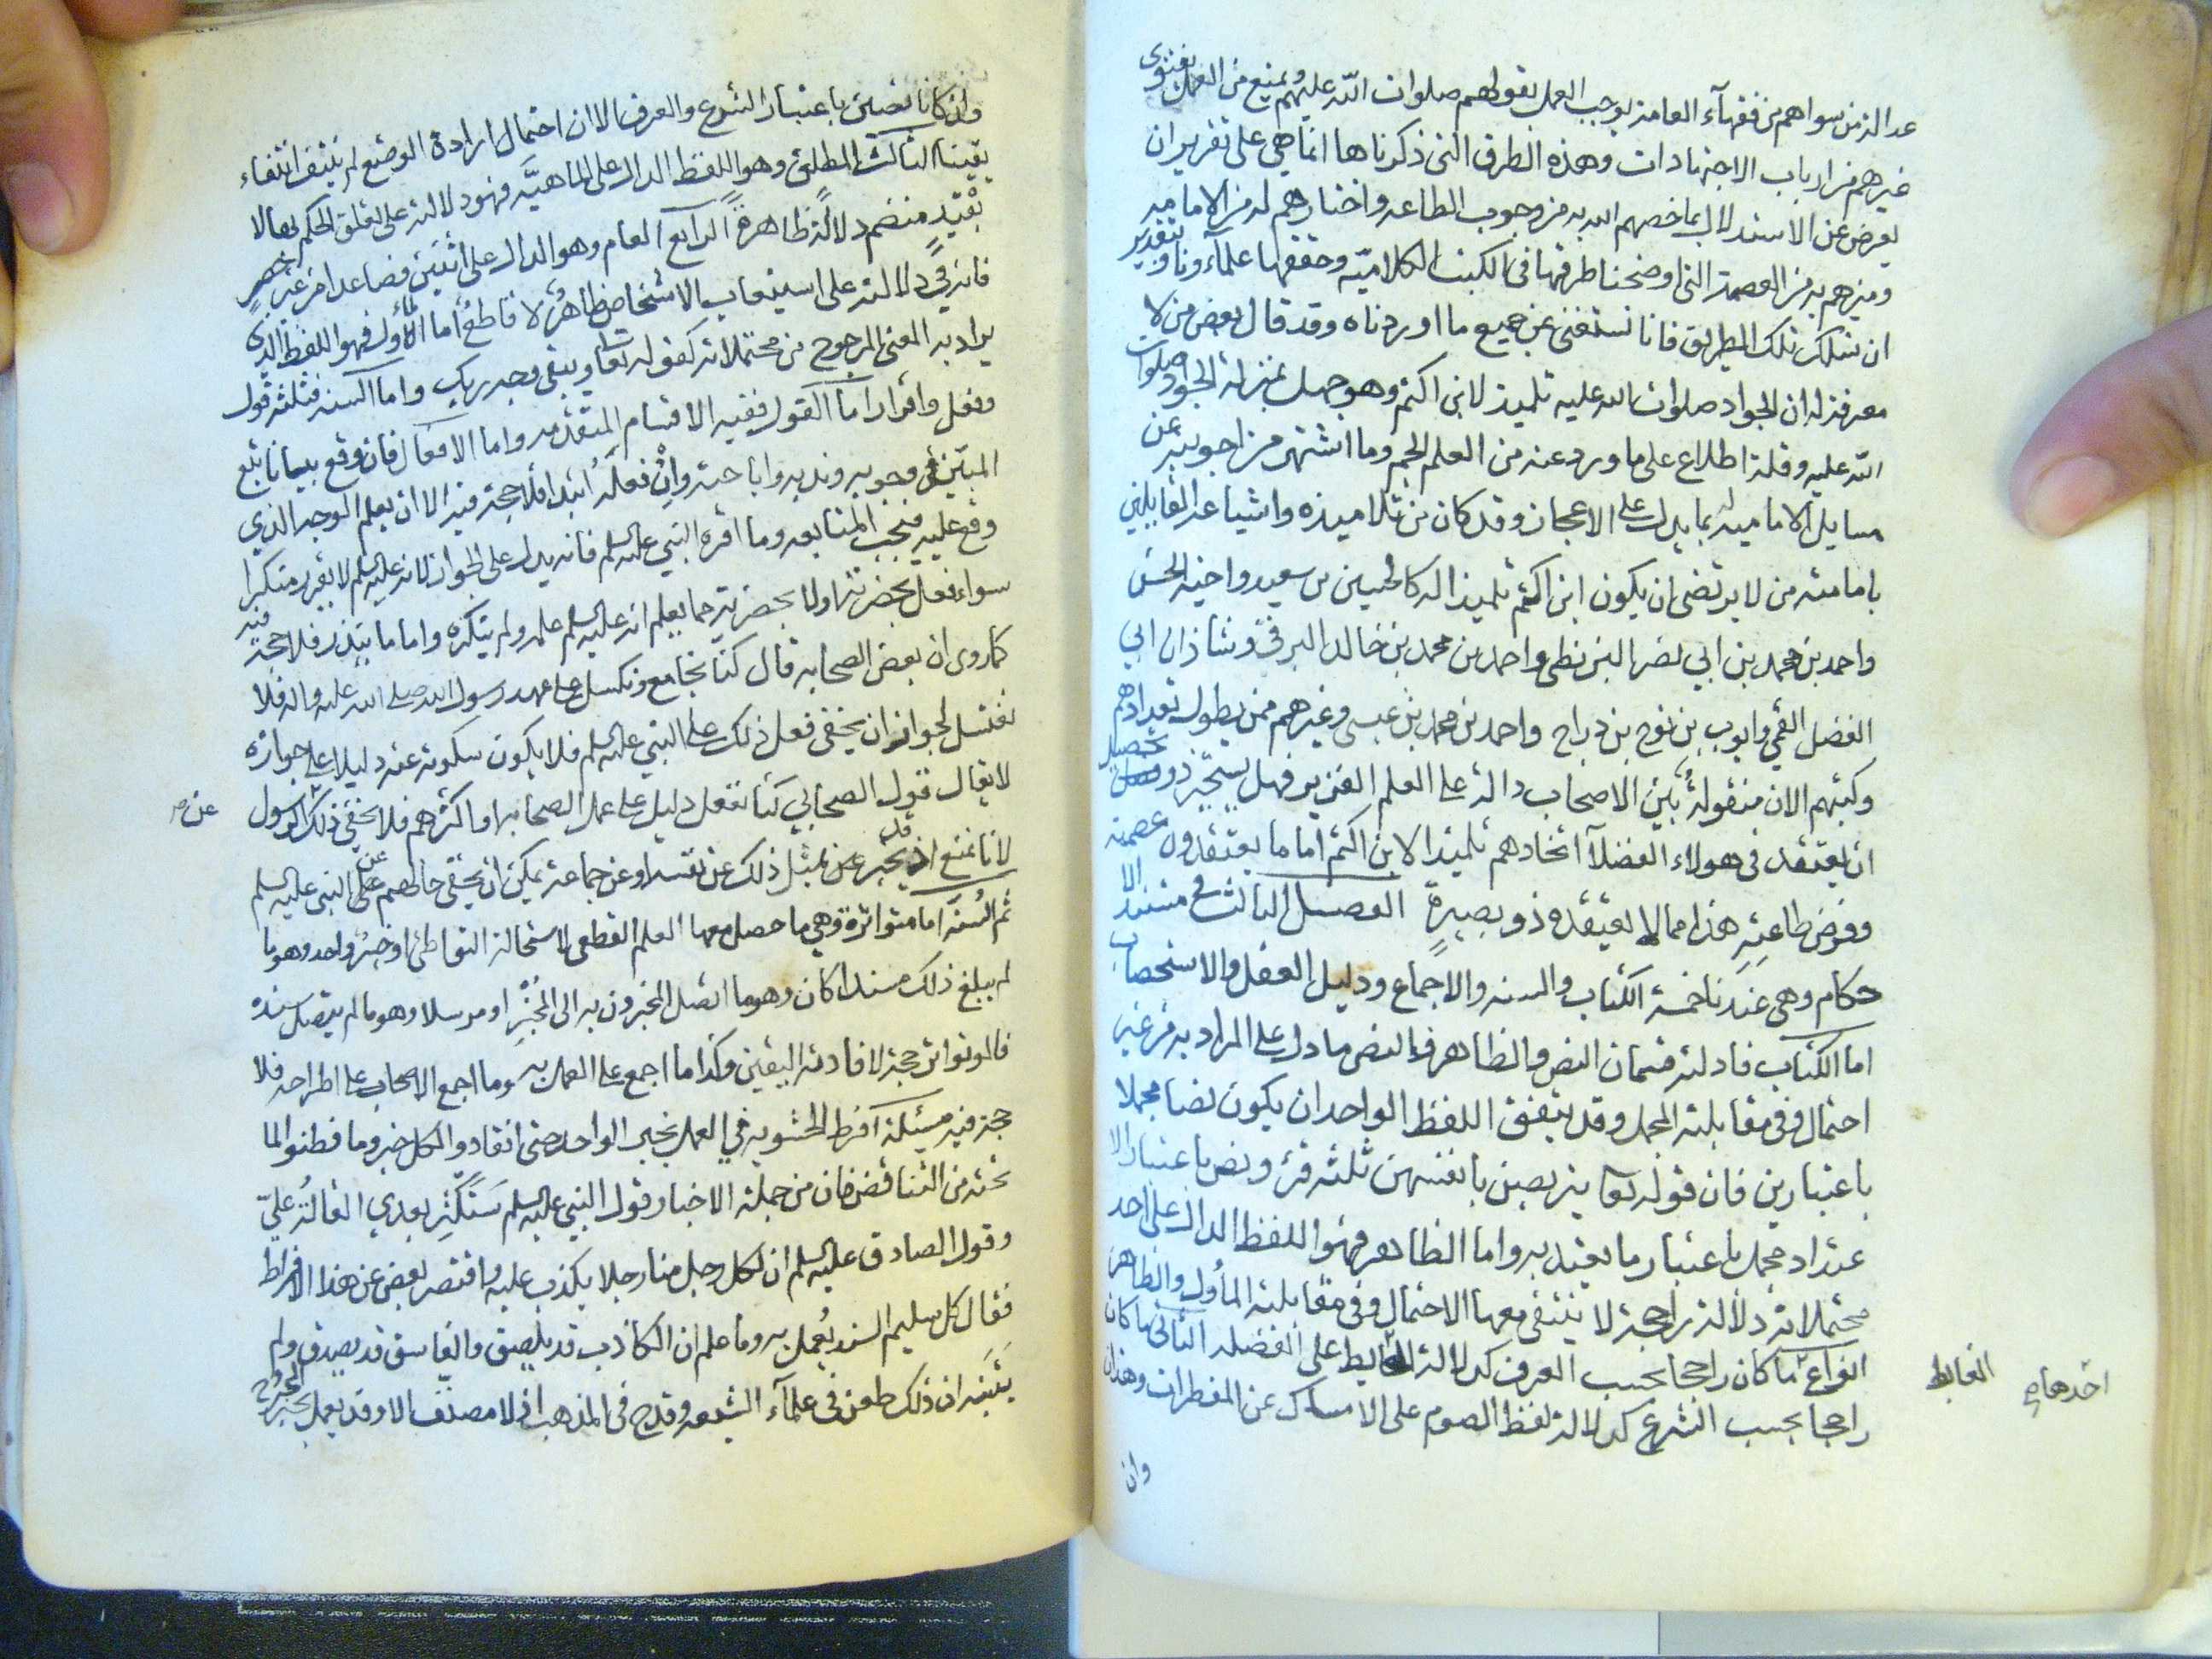 عدالة من سواهم من فقهآء العامة يوجب العمل بقولهم صلوات الله عليهم ويمنع من العمل بفتوى
غيرهم من ارباب الاجتهادات وهذه الطرق التى ذكرناها انما هي على تقدير ان
يعرض عن الاستدلال بما خصهم الله به من وجوب الطاعه واختارهم له من الامامه
وميزهم به من العصمة التى اوضحنا طرقها فى الكتب الكلاميّه وحققها علماءونا وبتقدير
ان نسلك تلك الطريق فانا نستغنى عن جميع ما اوردناه وقد قال بعض من لا
معرفة له ان الجواد صلوات الله عليه تلميذ لابن اكثم وهو جهل بمنزلة الجواد صلوات
الله عليه وقلة اطلاع على ما ورد عنه من العلم الجم وما اشتهر من اجوبته عن
مسايل الاماميه له بما يدل على الاعجاز وقد كان من تلاميذه واشياعه القايلين
بامامته من لا يرتضى ان يكون ابن اكثم تلميذا له كالحسين بن سعيد واخيه الحسن
واحمد بن محمد بن ابي نصر البزنطى واحمد بن محمد بن خالد البرقى وشاذان ابي
الفضل القمي وايوب بن نوح بن دراج واحمد بن محمد بن عيسى وغيرهم ممن يطول تعدادهم
وكتبهم الان منقولةُ بين الاصحاب دالة على العلم الغزير فهل يستجيز ذو تحصيل
ان يعتقد فى هولاء الفضلآ اتخاذهم تلميذا لابن اكثم اماما يعتقدون عصمته
وفرض طاعته هذا مما لا يعتقده ذو بصيرةٍ الفصل الثالث فى مستند الا
حكام وهى عندنا خمسة الكتاب والسنه والاجماع ودليل العقل والاستصحاب
اما الكتاب فادلته قسمان النص والظاهر فالنص ما دل على المراد به من غير
احتمال وفى مقابلته المجمل وقد يتفق اللفظ الواحد ان يكون نصا مجملا
باعتبارين فان قوله تعا يتربصن بانفسهن ثلثة قرؤ نص باعتبار الا
عتداد مجمل باعتبار ما يعتد به واما الظاهر فهو اللفظ الدال على احد
محتملاته دلالة راجحة لا ينتفى معها الاحتمال وفى مقابلته المأول والظاهر
انواع ما كان راجحا بحسب العرف كدلالة الغايط على الفضله الثانى ما كان
احدها
الغايط
راجحا بحسب الشرع كدلالة لفظ الصوم على الامساك عن المفطرات وهذان
وان
وان كانا نصين باعتبار الشرع والعرف الا ان احتمال ارادة الوضع لم ينتف انتفاء
يقينا الثالث المطلق وهو اللفظ الدال على الماهيّه فهو دلالته على تعلق الحكم بها لا
بقيد منضم دلالة ظاهرة الرابع العام وهو الدال على اثنين فصاعدا من غير حصر
فانه في دلالته على استيعاب الاشخاص ظاهرٌ لا قاطع اما المأول فهو اللفظ الذى
يراد به المعنى المرجوح من محتملاته كقوله تعا ويبقى وجه ربك واما السنه فثلثة قول
وفعل واقرار اما القول ففيه الاقسام المتقدمه واما الافعال فان وقع بيانا تابع
المبين فى وجوبه وندبه واباحته وان فعله ابتداءً فلا حجة فيه الا ان يعلم الوجه الذي
وقع عليه فتجب المتابعه وما اقره النبي عليه السلم فانه يدل على الجواز لانه عليه السلم لا يقر منكرا
سواء فعل بحضرته او لا بحضرته مما يعلم انه عليه السلم علمه ولم ينكره واما ما يندر فلا حجة فيه
كما روى ان بعض الصحابه قال كنا نجامع ونكسل على عهد رسول الله صلى الله عليه واله فلا
نغتسل لجواز ان يخفى فعل ذلك على النبي عليه السلم فلا يكون سكوته عنه دليلا على جوازه
لا يقال قول الصحابي كنا نفعل دليل على عمل الصحابه او اكثرهم فلا يخفى ذلك الرسول
عن
لانا نمنع اذ قد يخبر عن مثل ذلك عن نفسه او عن جماعة يمكن ان يخفى حالهم عن النبي عليه السلم
ثم السُنة اما متواترة وهي ما حصل معها العلم القطعى لاستحالة التواطئ او خبر واحد وهو ما
لم يبلغ ذلك مسندا كان وهو ما اتصل المخبرون به الى المُخبَر او مرسلا وهو ما لم يتصل سنده
فالمتواتر حجة لافادته اليقين وكذا ما اجمع على العمل به وما اجمع الاصحاب على اطراحه فلا
حجة فيه مسئلة افرط الحشويه في العمل بخبر الواحد حتى انقادوا لكل خبر وما فطنوا لما
تحته من التناقض فان من جملة الاخبار قول النبي عليه السلم ستكثر بعدي القالةُ عليّ
وقول الصادق عليه السلم ان لكل رجل منا رجلا يكذب عليه واقتصر بعض عن هذا الافراط
فقال كل سليم السند يُعمل به وما علم ان الكاذب قد يلصق والفاسق قد يصدق ولم
يتنبه ان ذلك طعن فى علمآء الشيعه وقدح فى المذهب اذ لا مصنف الا وقد يعمل بخبر المجروح